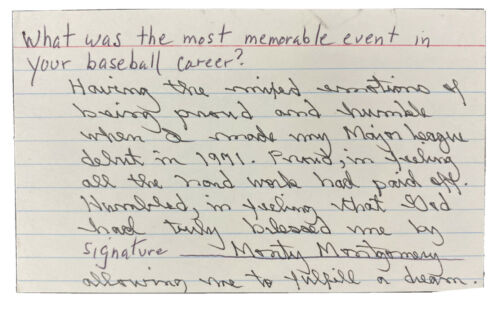 What was the most memorable event in
your baseball career?
Having the mixed emotions of
being proud and humble
when I made my Major League
debut in 1971. Proud, in feeling
all the hard work had paid off.
Humbled, in feeling that God
had truly blessed me by
signature Monty Montgomery
allowing me to fulfill a dream.